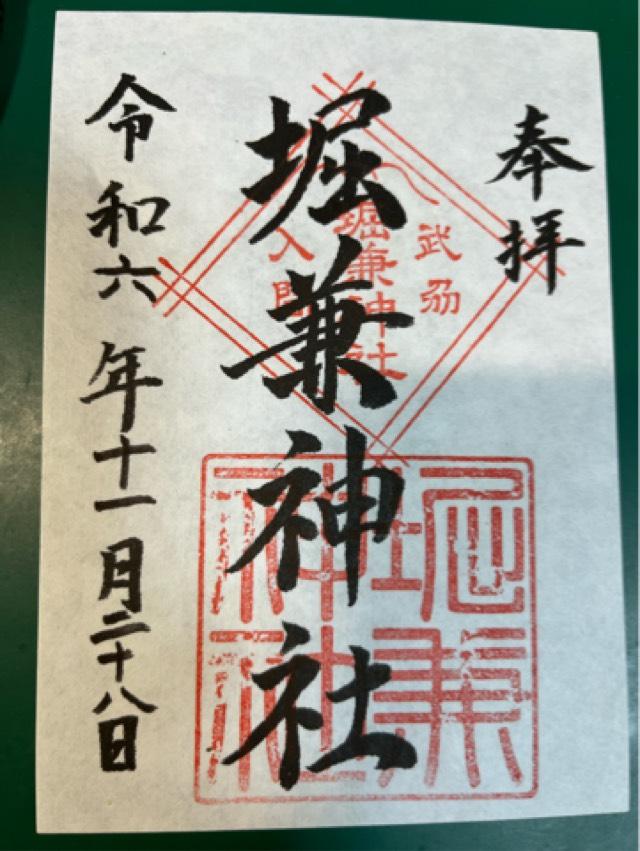 奉拝
武刕
堀兼神社
入間
堀兼神社
堀兼神社
令和六年十一月二十八日